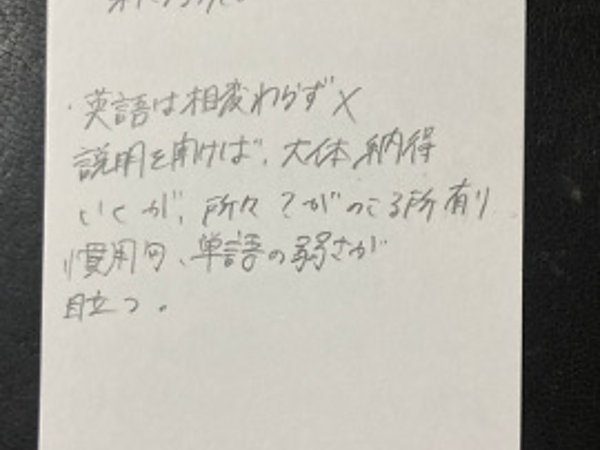 ・英語は相変わらず×
説明を聞けば、大体納得
いくが、所々?がのこる所有り
慣用句、単語の弱さが
目立つ。